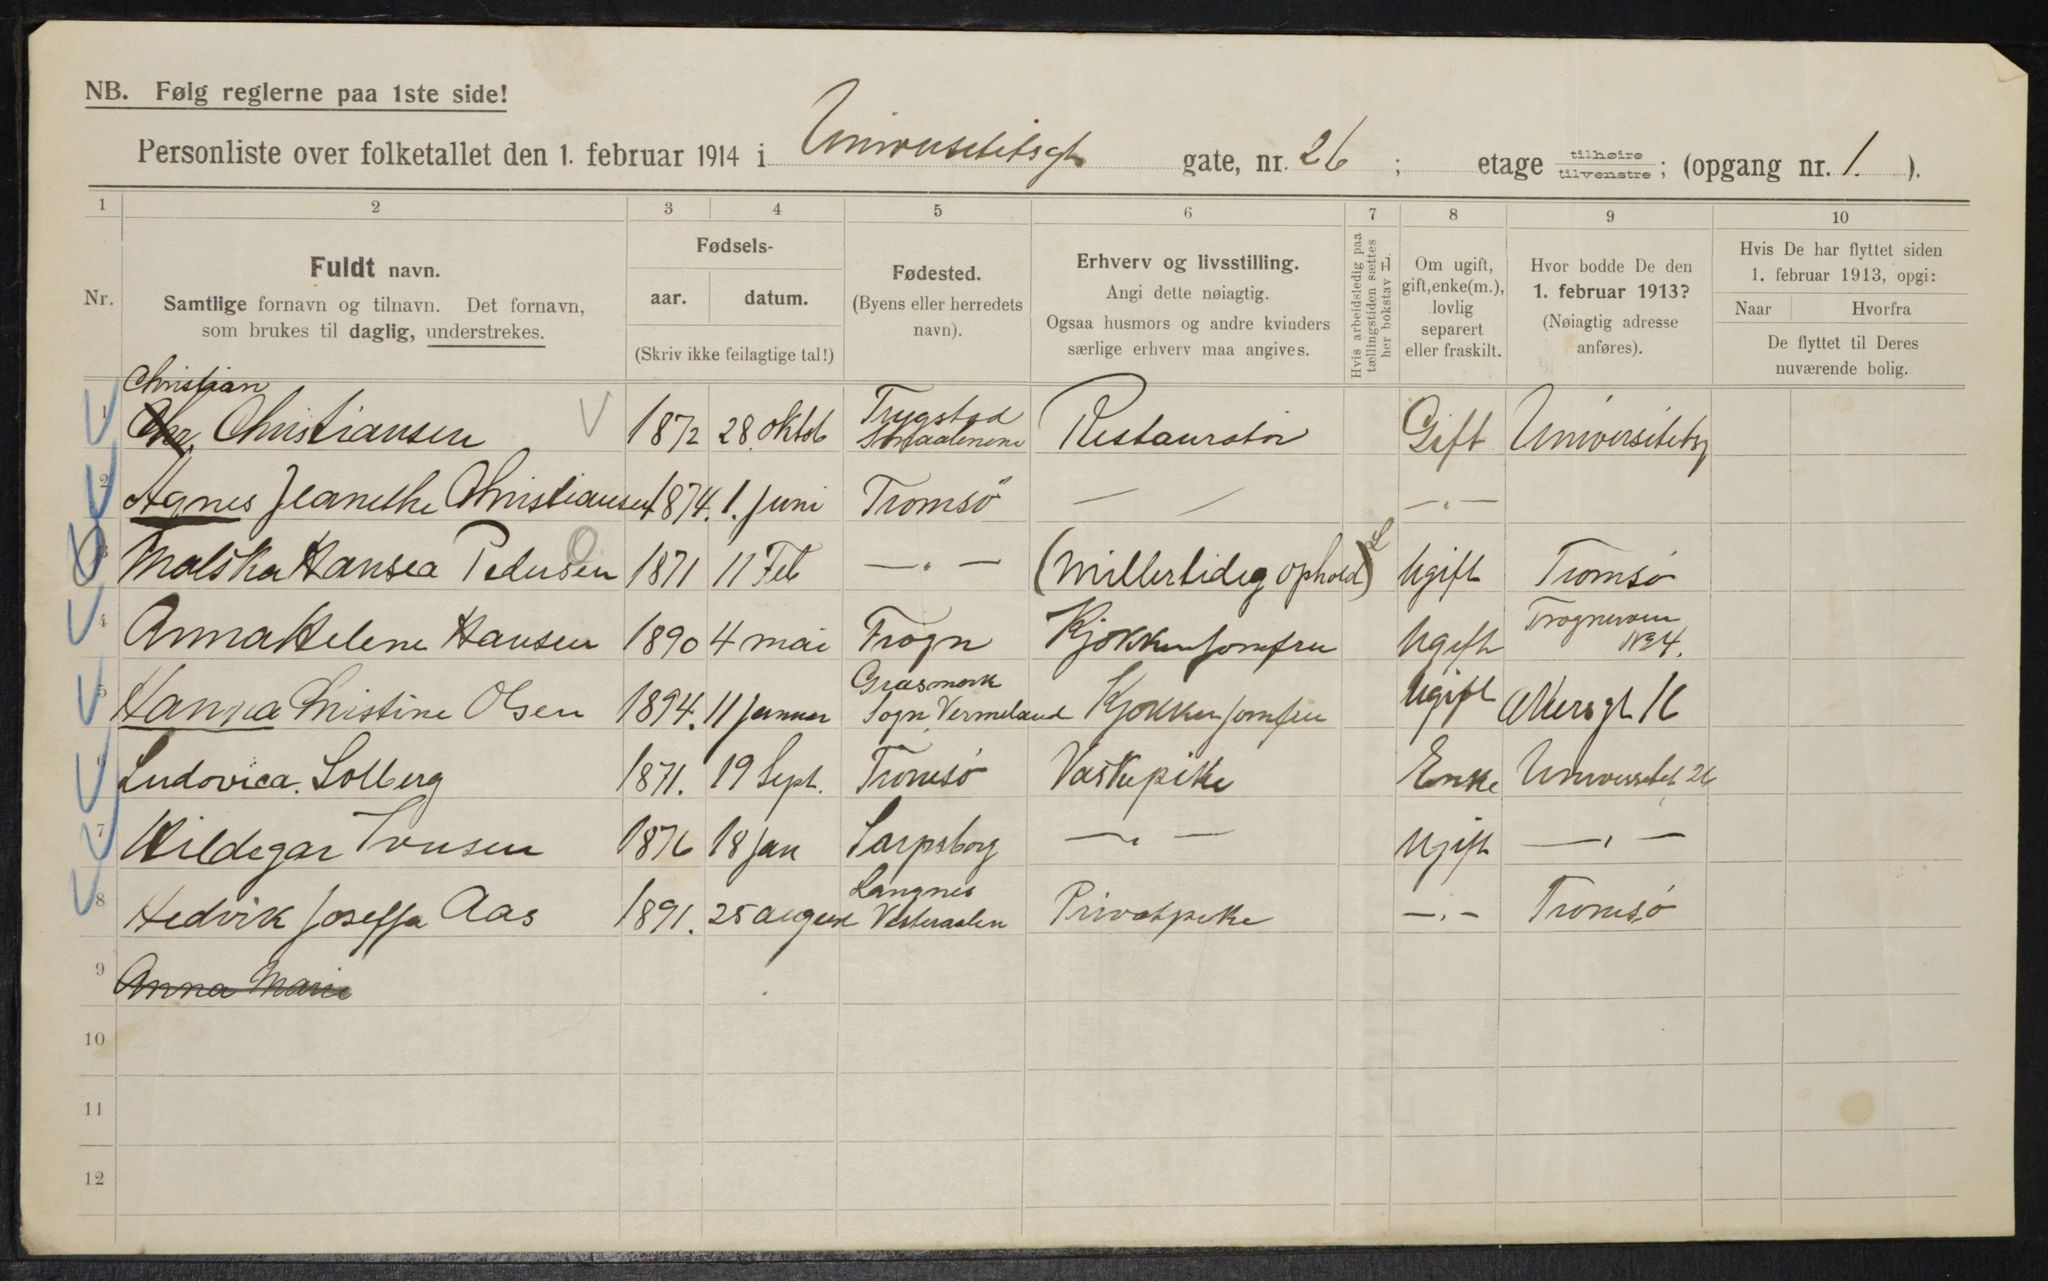 NB. Følg reglerne paa 1ste side!
Personliste over folketallet den 1. februar 1914 i Universitetsgt gate, nr. 26 ; etage tilhøire tilvenstre ; (opgang nr. 1. ).
1 2 3 4 5 6 7 8 9 10
Nr.
Fuldt navn.
Samtlige fornavn og tilnavn. Det fornavn,
som brukes til daglig, understrekes.
Fødsels-
aar. datum.
(Skriv ikke feilagtige tal!)
Fødested.
(Byens eller herredets
navn).
Erhverv og livsstilling.
Angi dette nøiagtig.
Ogsaa husmors og andre kvinders
særlige erhverv maa angives.
Hvis arbeidsledig paa
tællingstiden sættes
her bokstav L
Om ugift,
gift, enke(m.),
lovlig
separert
eller fraskilt.
Hvor bodde De den
1. februar 1913?
(Nøiagtig adresse
anføres).
Hvis De har flyttet siden
1. februar 1913, opgi:
Naar Hvorfra
De flyttet til Deres
nuværende bolig.
Christian
1 Chr. Christiansen 1872 28. oktob Trygstad Smaalenene Restauratør Gift Universitetsg
2 Agnes Jeanethe Christiansen 1874. 1. Juni Tromsö — — —〃—
3 Malska Hansea Pedersen 1871 11 Feb —〃— (Millertidig ophold) L Ugift Tromsø
4 Anna Helene Hansen 1890 4 mai Frogn Kjøkkenjomfru Ugift Frognerveien No 4.
5 Hanna Kristine Olsen 1894. 11 Januar Grasmark Sogn, Vermeland Kjøkkenjomfru Ugift Akersgt 16
6 Ludovica. Solberg 1871. 19 Sept. Tromsø Vaskepike Enke Universitet. 26
7 Hildegar Iversen 1876 18 Jan Sarpsborg —〃— Ugift —〃—
8 Hedvik Joseffa Aas 1891. 25 august Langnes Vesteraalen Privatpike —〃— Tromsø
9 Anna Marie
10
11
12